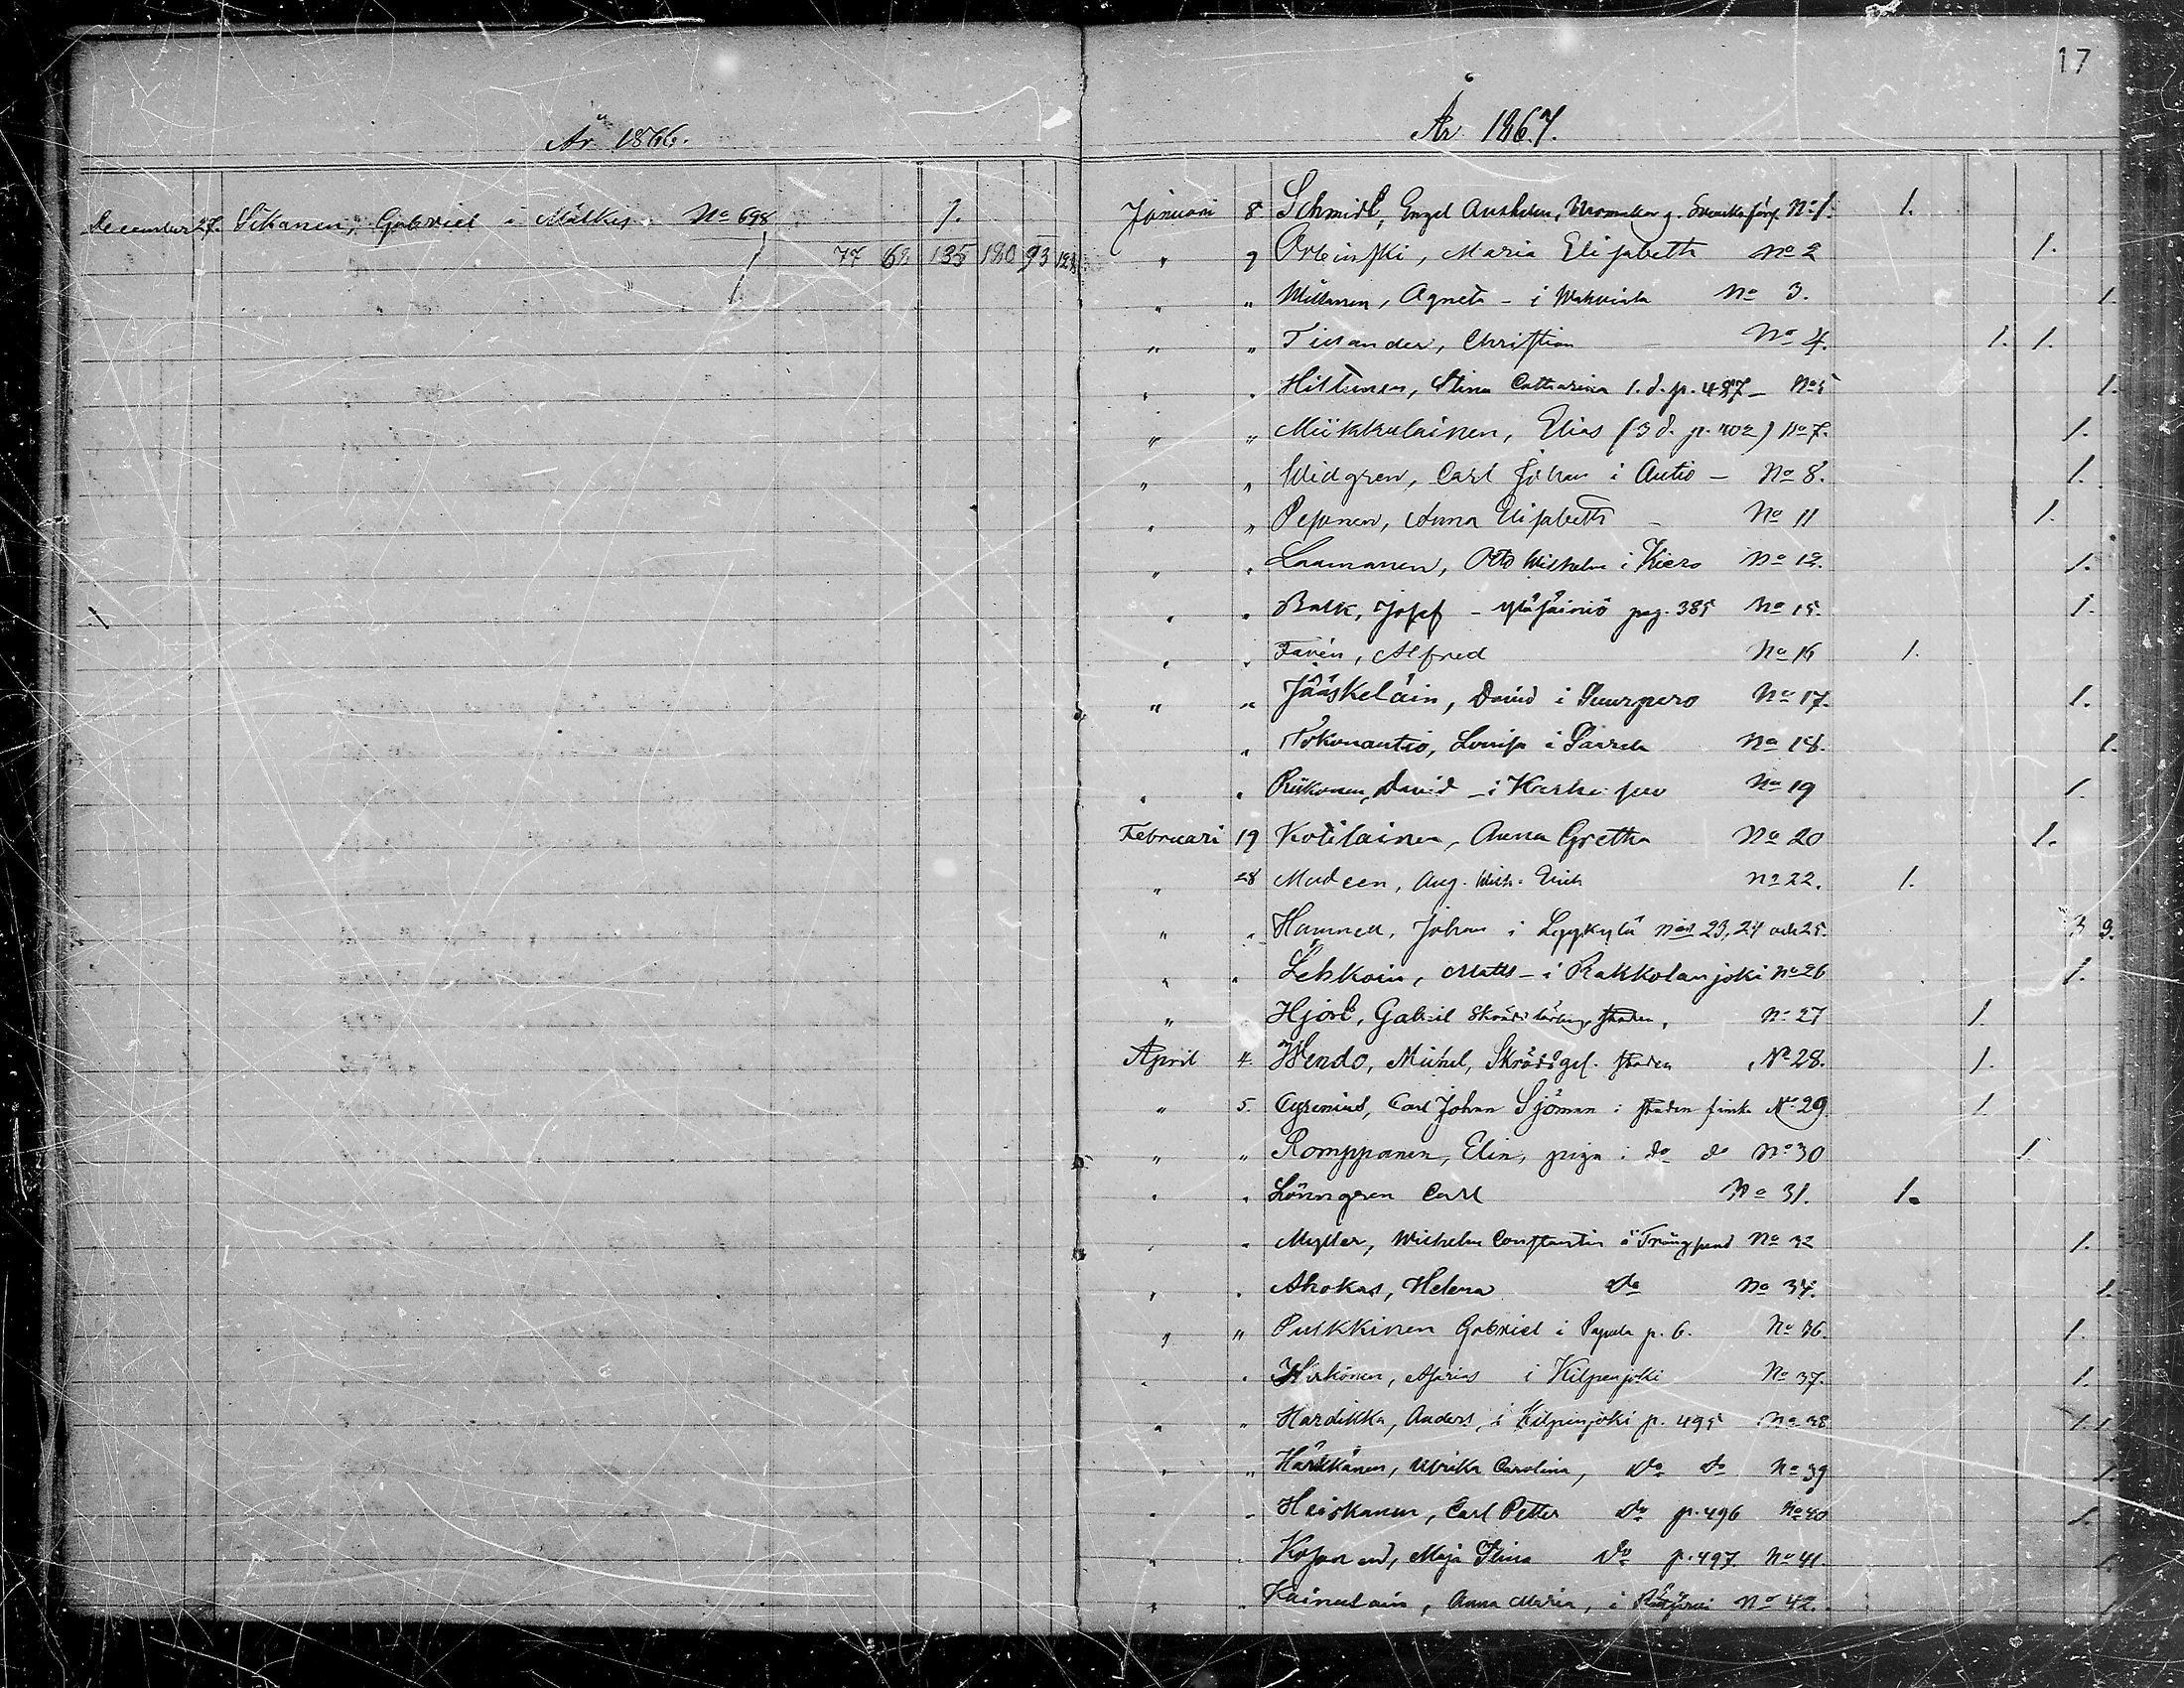 År 1866.
December 27. Sikanen, Gabriel i Mälkes. No 698 1.
77 68 135 180 93 128
17
År 1867.
Januari 8 Schmidt, Engel No 1. 1.
" 9 Orbinski, Maria Elisabeth No 2 1.
" " Agneta - i No 3. 1.
" " Tilander, Christian No 4. 1. 1.
" " Hiltunen, Stina Catharina 1. d. p. 487 - No 5 1.
" " Miikkulainen, Elias (3 d. p. 402) No 7. 1.
" " Widgren, Carl Johan i Autio - No 8. 1.
" " Pesonen, Anna Elisabeth - No 11 1.
" " Laamanen, Otto Wilhelm i Kiero No 12. 1.
" " Balk, Josef - Yläsäiniö pag. 385 No 15. 1.
" " Favén, Alfred No 16 1.
" " Jääskeläin, David i Suurpero No 17. 1.
" Tokonautio, Lovisa i No 18. 1.
" " David - i No 19 1.
Februari 19 Kotilainen, Anna Gretha No 20 1.
" 28 Modeen, Aug. Wilh. Erich No 22. 1.
" " Johan i Lyykylä No 23, 24 och 25. 3 3.
" " Lehkoin, Matts - i Rakkolanjoki No 26 1.
" Hjort, Gabriel staden, No 27 1.
April 4. Wendo, Michel, Skrädd.ges. staden, No 28. 1.
" 5. Cyrenius, Carl Johan Sjöman i staden finska No 29 1.
" " Romppanen, Elin, piga i do do No 30 1.
" " Lönngren Carl No 31. 1.
" " Myller, Wilhelm Constantin å Trångsund No 32 1.
" " Ahokas, Helena do No 34. 1.
" " Pulkkinen Gabriel i Papula p. 6. No 36. 1.
" " i Kilpenjoki No 37. 1.
" " Hardikka, Anders, i Kilpenjoki p. 495 No 38 1. 1
" " Härkkänen, Ulrika Carolina, do do No 39 1.
" " Heiskanen, Carl Petter do p. 496 No 40 1.
" " Maja Stina do p. 497 No 41. 1.
" " Kainulain, Anna Maria, i No 42. 1